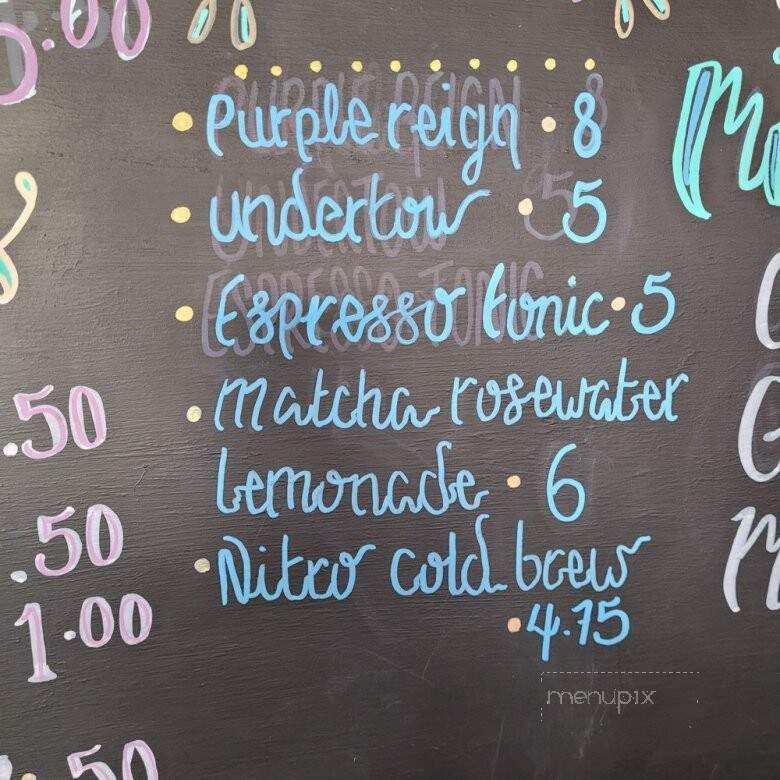 5.00
Purple reign · 8
undertow · 5
Espresso tonic · 5
Matcha rosewater
Lemonade · 6
Nitro cold brew
· 4.75
.50
.50
1.00
.50
menupix